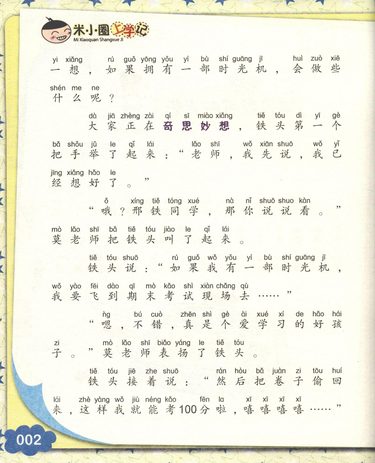 米小圈上学记
Mi Xiaoquan Shangxue Ji
yì xiǎng rú guǒ yōng yǒu yí bù shí guāng jī huì zuò xiē
一想，如果拥有一部时光机，会做些
shén me ne
什么呢？
dà jiā zhèng zài qí sī miào xiǎng tiě tóu dì yī gè
大家正在奇思妙想，铁头第一个
bǎ shǒu jǔ le qǐ lái lǎo shī wǒ xiān shuō wǒ yǐ
把手举了起来：“老师，我先说，我已
jīng xiǎng hǎo le
经想好了。”
ó xíng tiě tóng xué nà nǐ shuō shuo kàn
“哦？邢铁同学，那你说说看。”
mò lǎo shī bǎ tiě tóu jiào le qǐ lái
莫老师把铁头叫了起来。
tiě tóu shuō rú guǒ wǒ yǒu yí bù shí guāng jī
铁头说：“如果我有一部时光机，
wǒ yào fēi dào qī mò kǎo shì xiàn chǎng qù
我要飞到期末考试现场去……”
ǹg bú cuò zhēn shì gè ài xué xí de hǎo hái
“嗯，不错，真是个爱学习的好孩
zi mò lǎo shī biǎo yáng le tiě tóu
子。”莫老师表扬了铁头。
tiě tóu jiē zhe shuō rán hòu bǎ juàn zi tōu huí
铁头接着说：“然后把卷子偷回
lái zhè yàng wǒ jiù néng kǎo fēn la xī xī xī xī
来，这样我就能考100分啦，嘻嘻嘻嘻……”
002